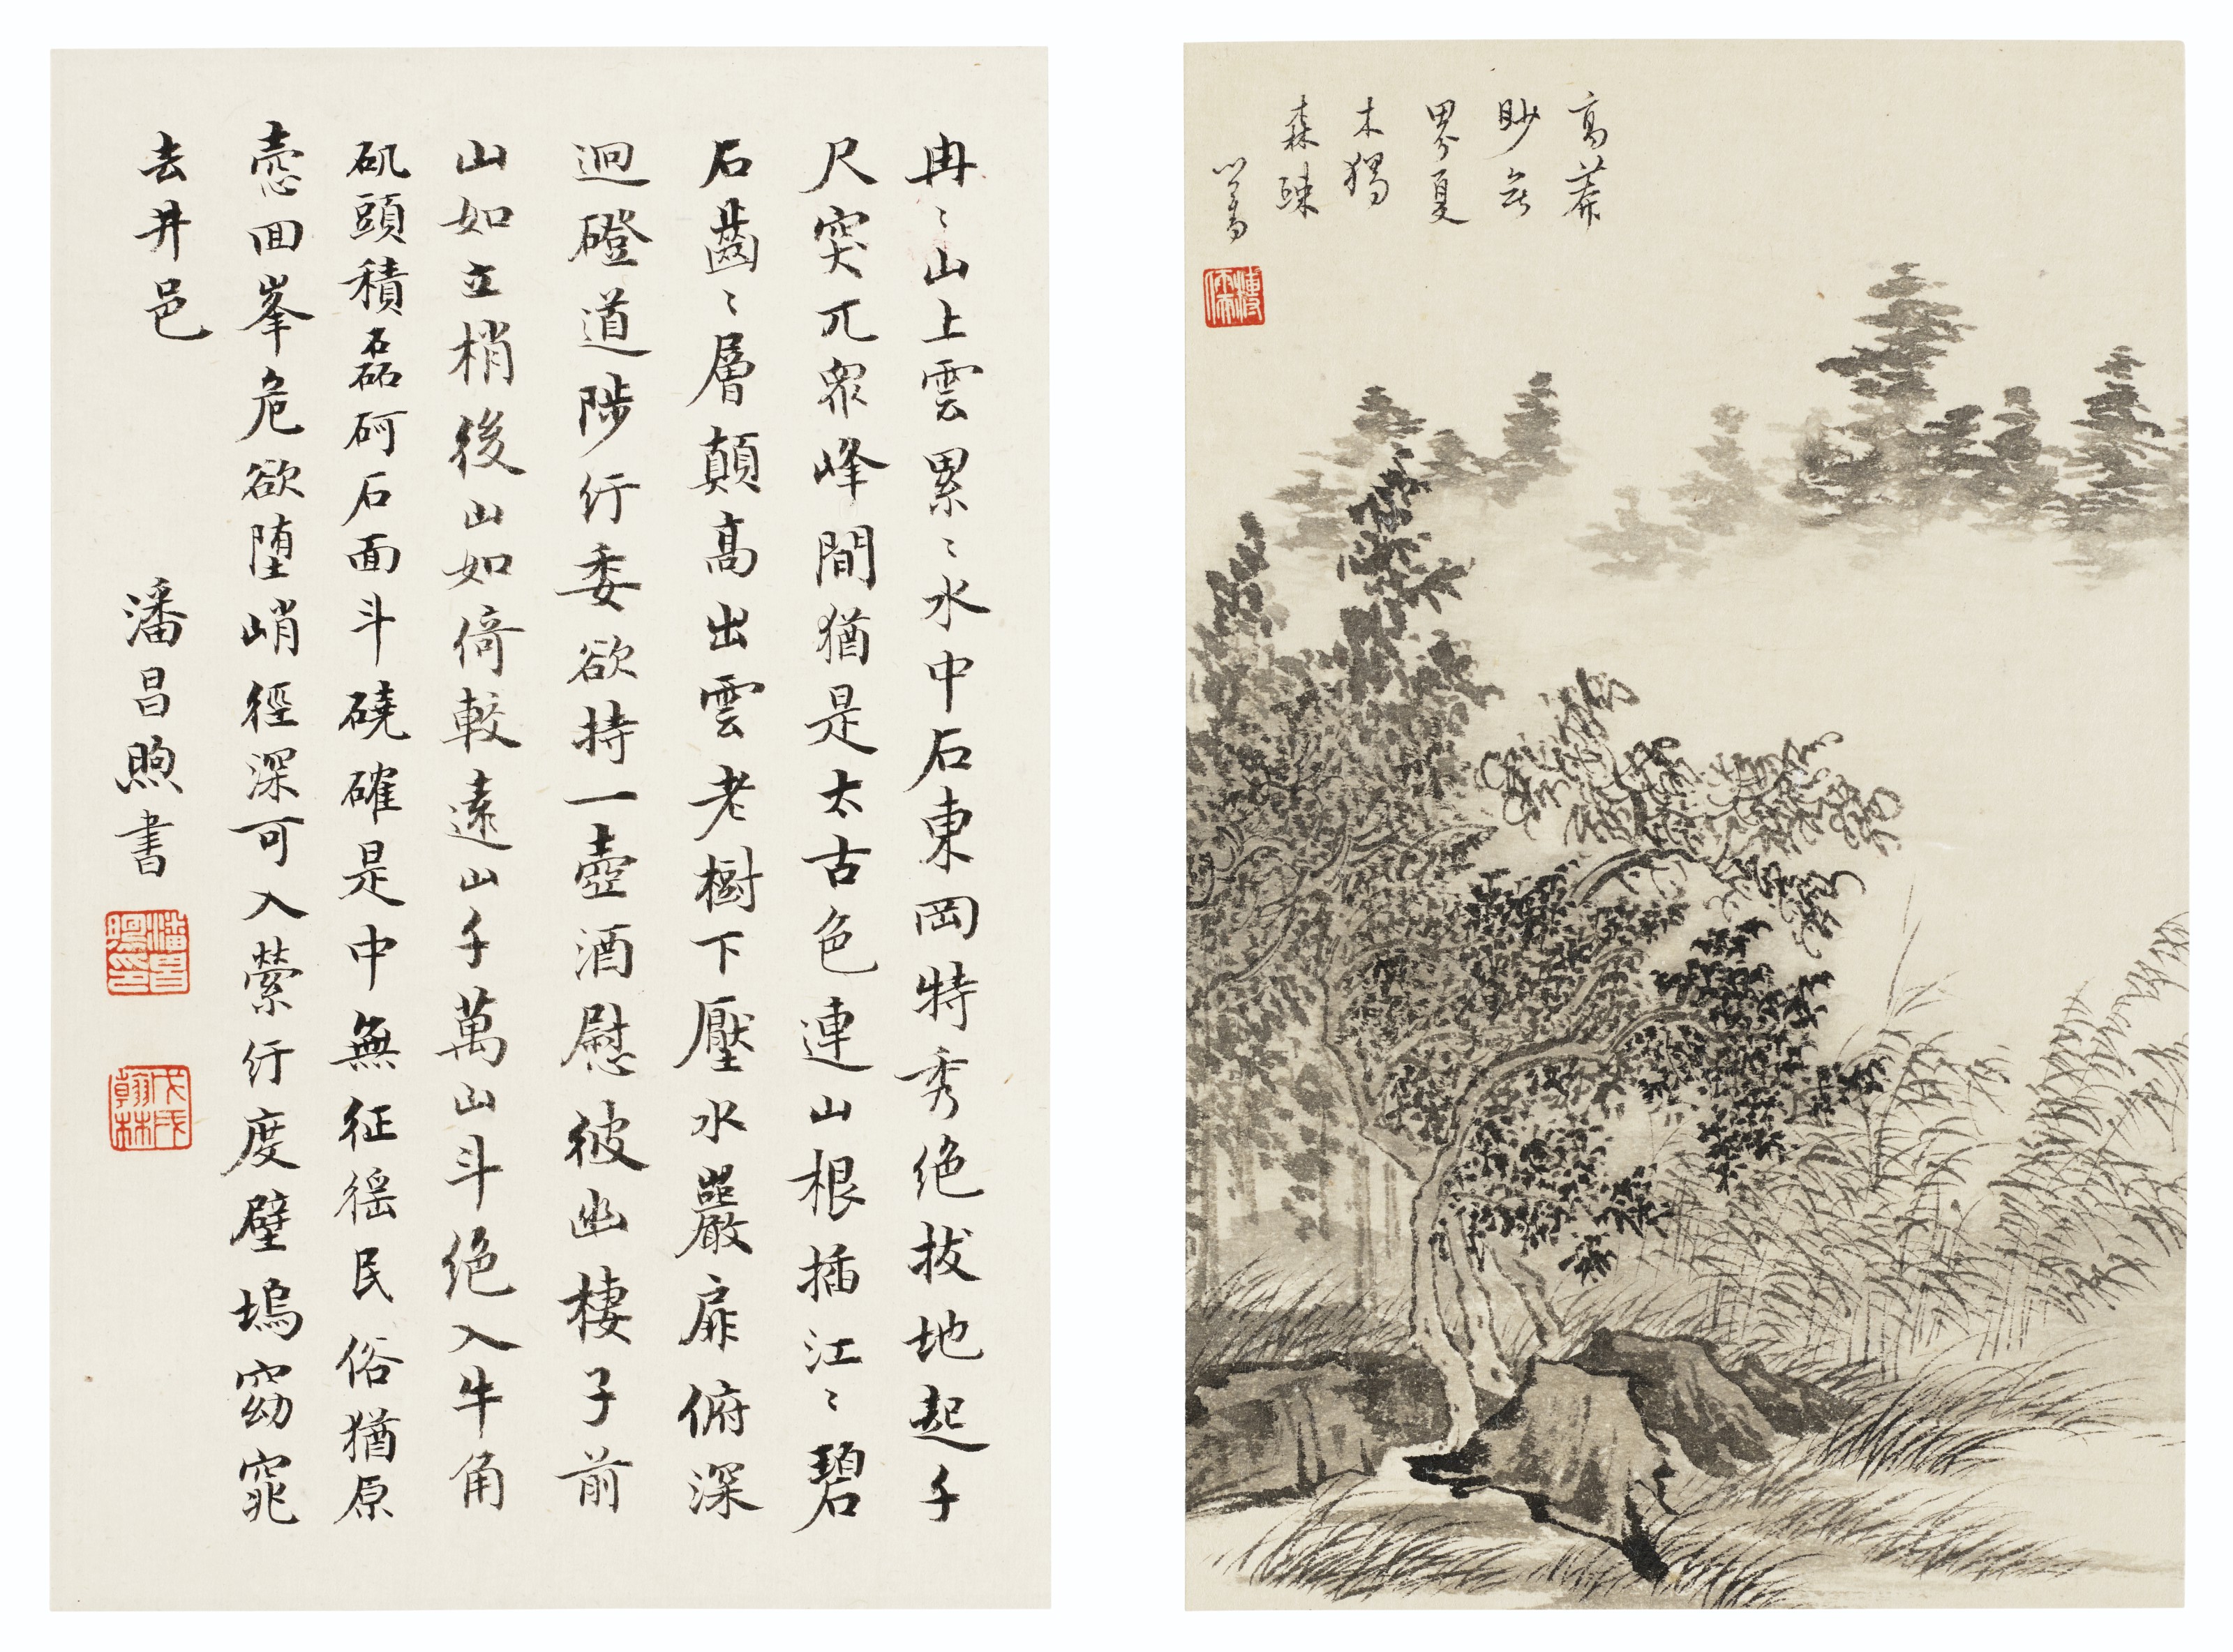 高莽
眇無
界夏
木獨
森疎
心畬
溥儒
冉〻山上雲累〻水中石東岡特秀絕拔地起千
尺突兀衆峰間猶是太古色連山根插江〻碧
石齒〻層顛高出雲老樹下壓水巖扉俯深
迥磴道陟紆委欲持一壺酒慰彼幽棲子前
山如立梢後山如倚較遠山千萬山斗絕入牛角
矶頭積磊砢石面斗磽確是中無征徭民俗猶原
愨回峯危欲墮峭徑深可入縈紆度壁塢窈窕
去井邑 潘昌煦書
潘昌煦印
戊戌翰林